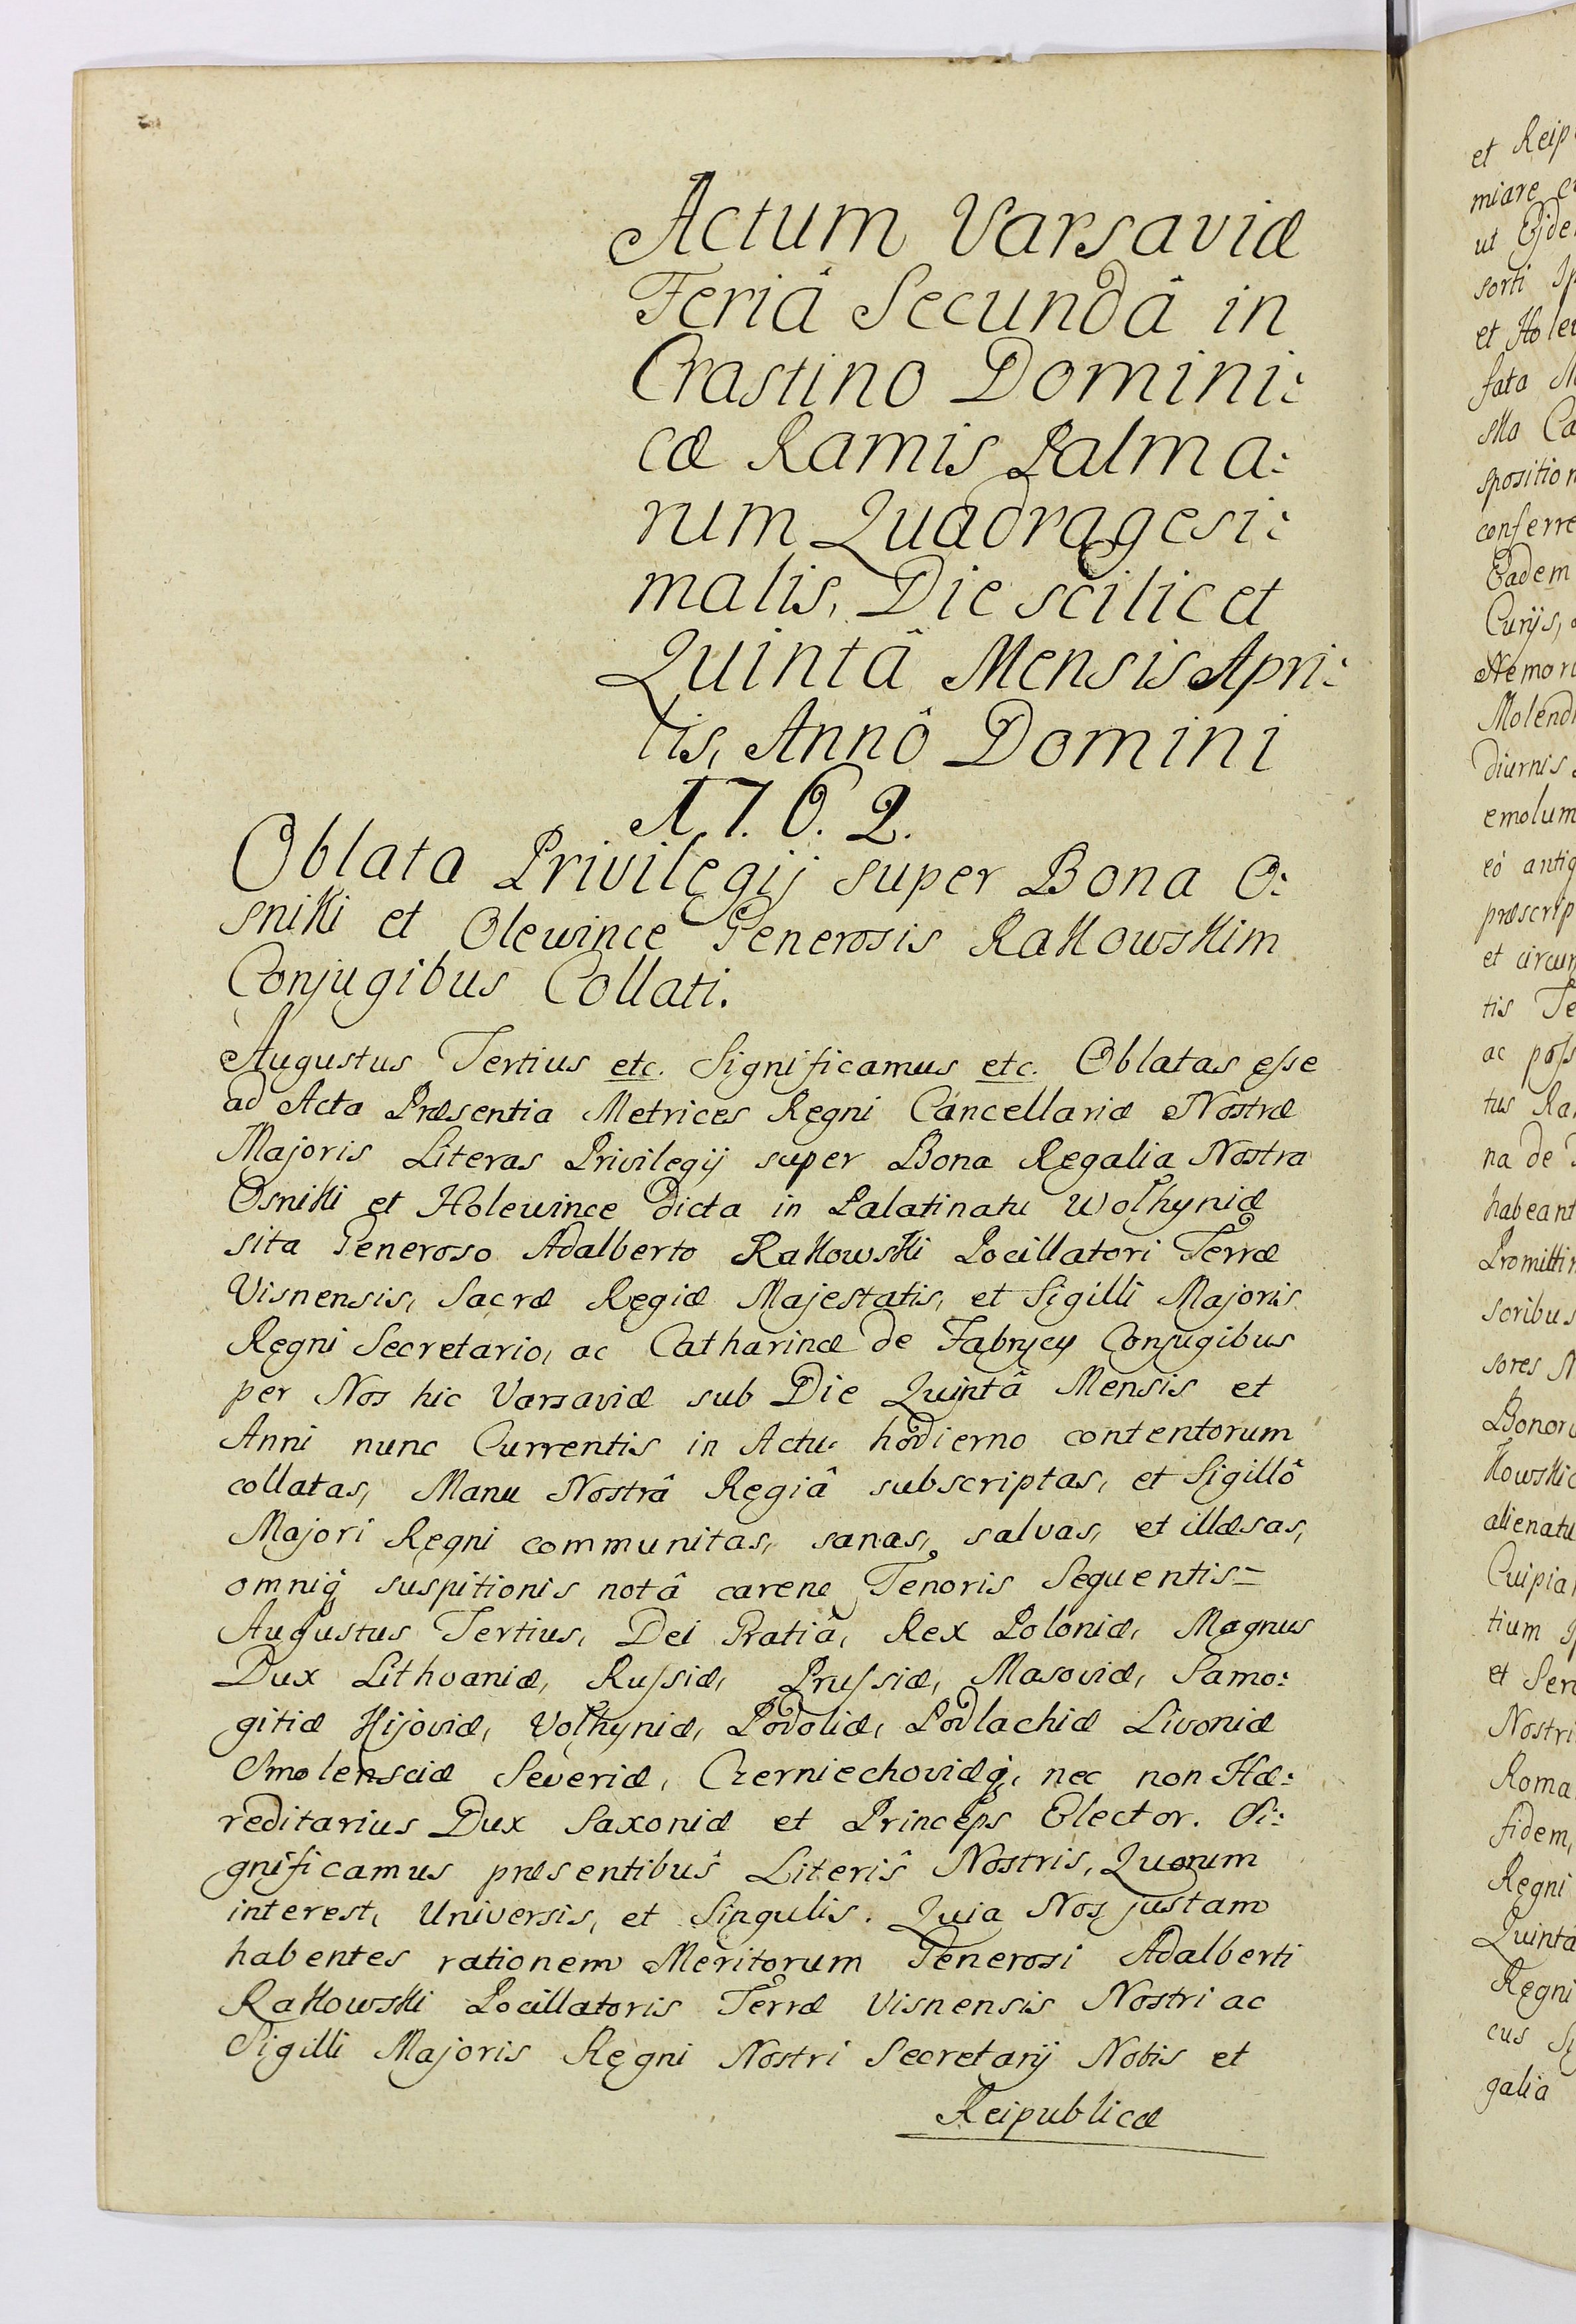 Actum Varsaviæ
Feriâ Secundâ in
Crastino Domini:
cæ Ramis Palma:
rum Quadragesi:
malis, Die scilicet
Quintâ Mensis Apri:
lis, Annô Domini
1762.
Oblata Privilegij super Bona O:
sniki et Olewince Generosis Rakowskim
Conjugibus Collati.
Augustus Tertius etc. Significamus etc. Oblatas esse
ad Acta Præsentia Metrices Regni Cancellariæ Nostræ
Majoris Literas Privilegij super Bona Regalia Nostra
Osniki et Holewince dicta in Palatinatu Wolhyniæ
sita Generoso Adalberto Rakowski Pocillatori Terræ
Visnensis, Sacræ Regiæ Majestatis, et Sigilli Majoris
Regni Secretario, ac Catharinæ de Fabrycy Conjugibus
per Nos hic Varsaviæ sub Die Quintâ Mensis et
Anni nunc Currentis in Actu hodierno contentorum
collatas, Manu Nostrâ Regiâ subscriptas, et Sigillô
Majori Regni communitas, sanas, salvas, et illæsas,
omniq; suspitionis notâ carene Tenoris Sequentis=
Augustus Tertius, Dei Gratiâ, Rex Poloniæ, Magnus
Dux Lithvaniæ, Russiæ, Prussiæ, Masoviæ, Samo:
gitiæ Kijoviæ, Volhyniæ, Podoliæ, Podlachiæ Livoniæ
Smolensciæ Severiæ, Czerniechoviæq;, nec non Hæ:
reditarius Dux Saxoniæ et Princeps Elector. Si:
gnificamus præsentibus Literis Nostris, Quorum
interest, Universis, et Singulis. Quia Nos justam
habentes rationem Meritorum Generosi Adalberti
Rakowski Pocillatoris Terræ Visnensis Nostri ac
Sigilli Majoris Regni Nostri Secretarij Nobis et
Reipublicæ
et Reip
miare
ut Ejde
sorti
et Hole
fata
ska Ca
sposition
conferre
Eadem
Curijs,
Nemori
Molend
diurnis
emolum
eô antiq
præscrip
et circum
tis Te
ac poss
tus Ra
na de
habeant
Promitti
soribus
sores N
Bonoru
kowski
alienatu
Cuipia
tium
et Ser
Nostri
Roma
fidem,
Regni
Quinta
Regni
cus
galia